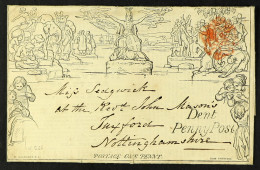 Mrs Sedgwick
at the Revd John Mason's
Dent
Penny Post
Tuxford
Nottinghamshire
POSTAGE ONE PENNY